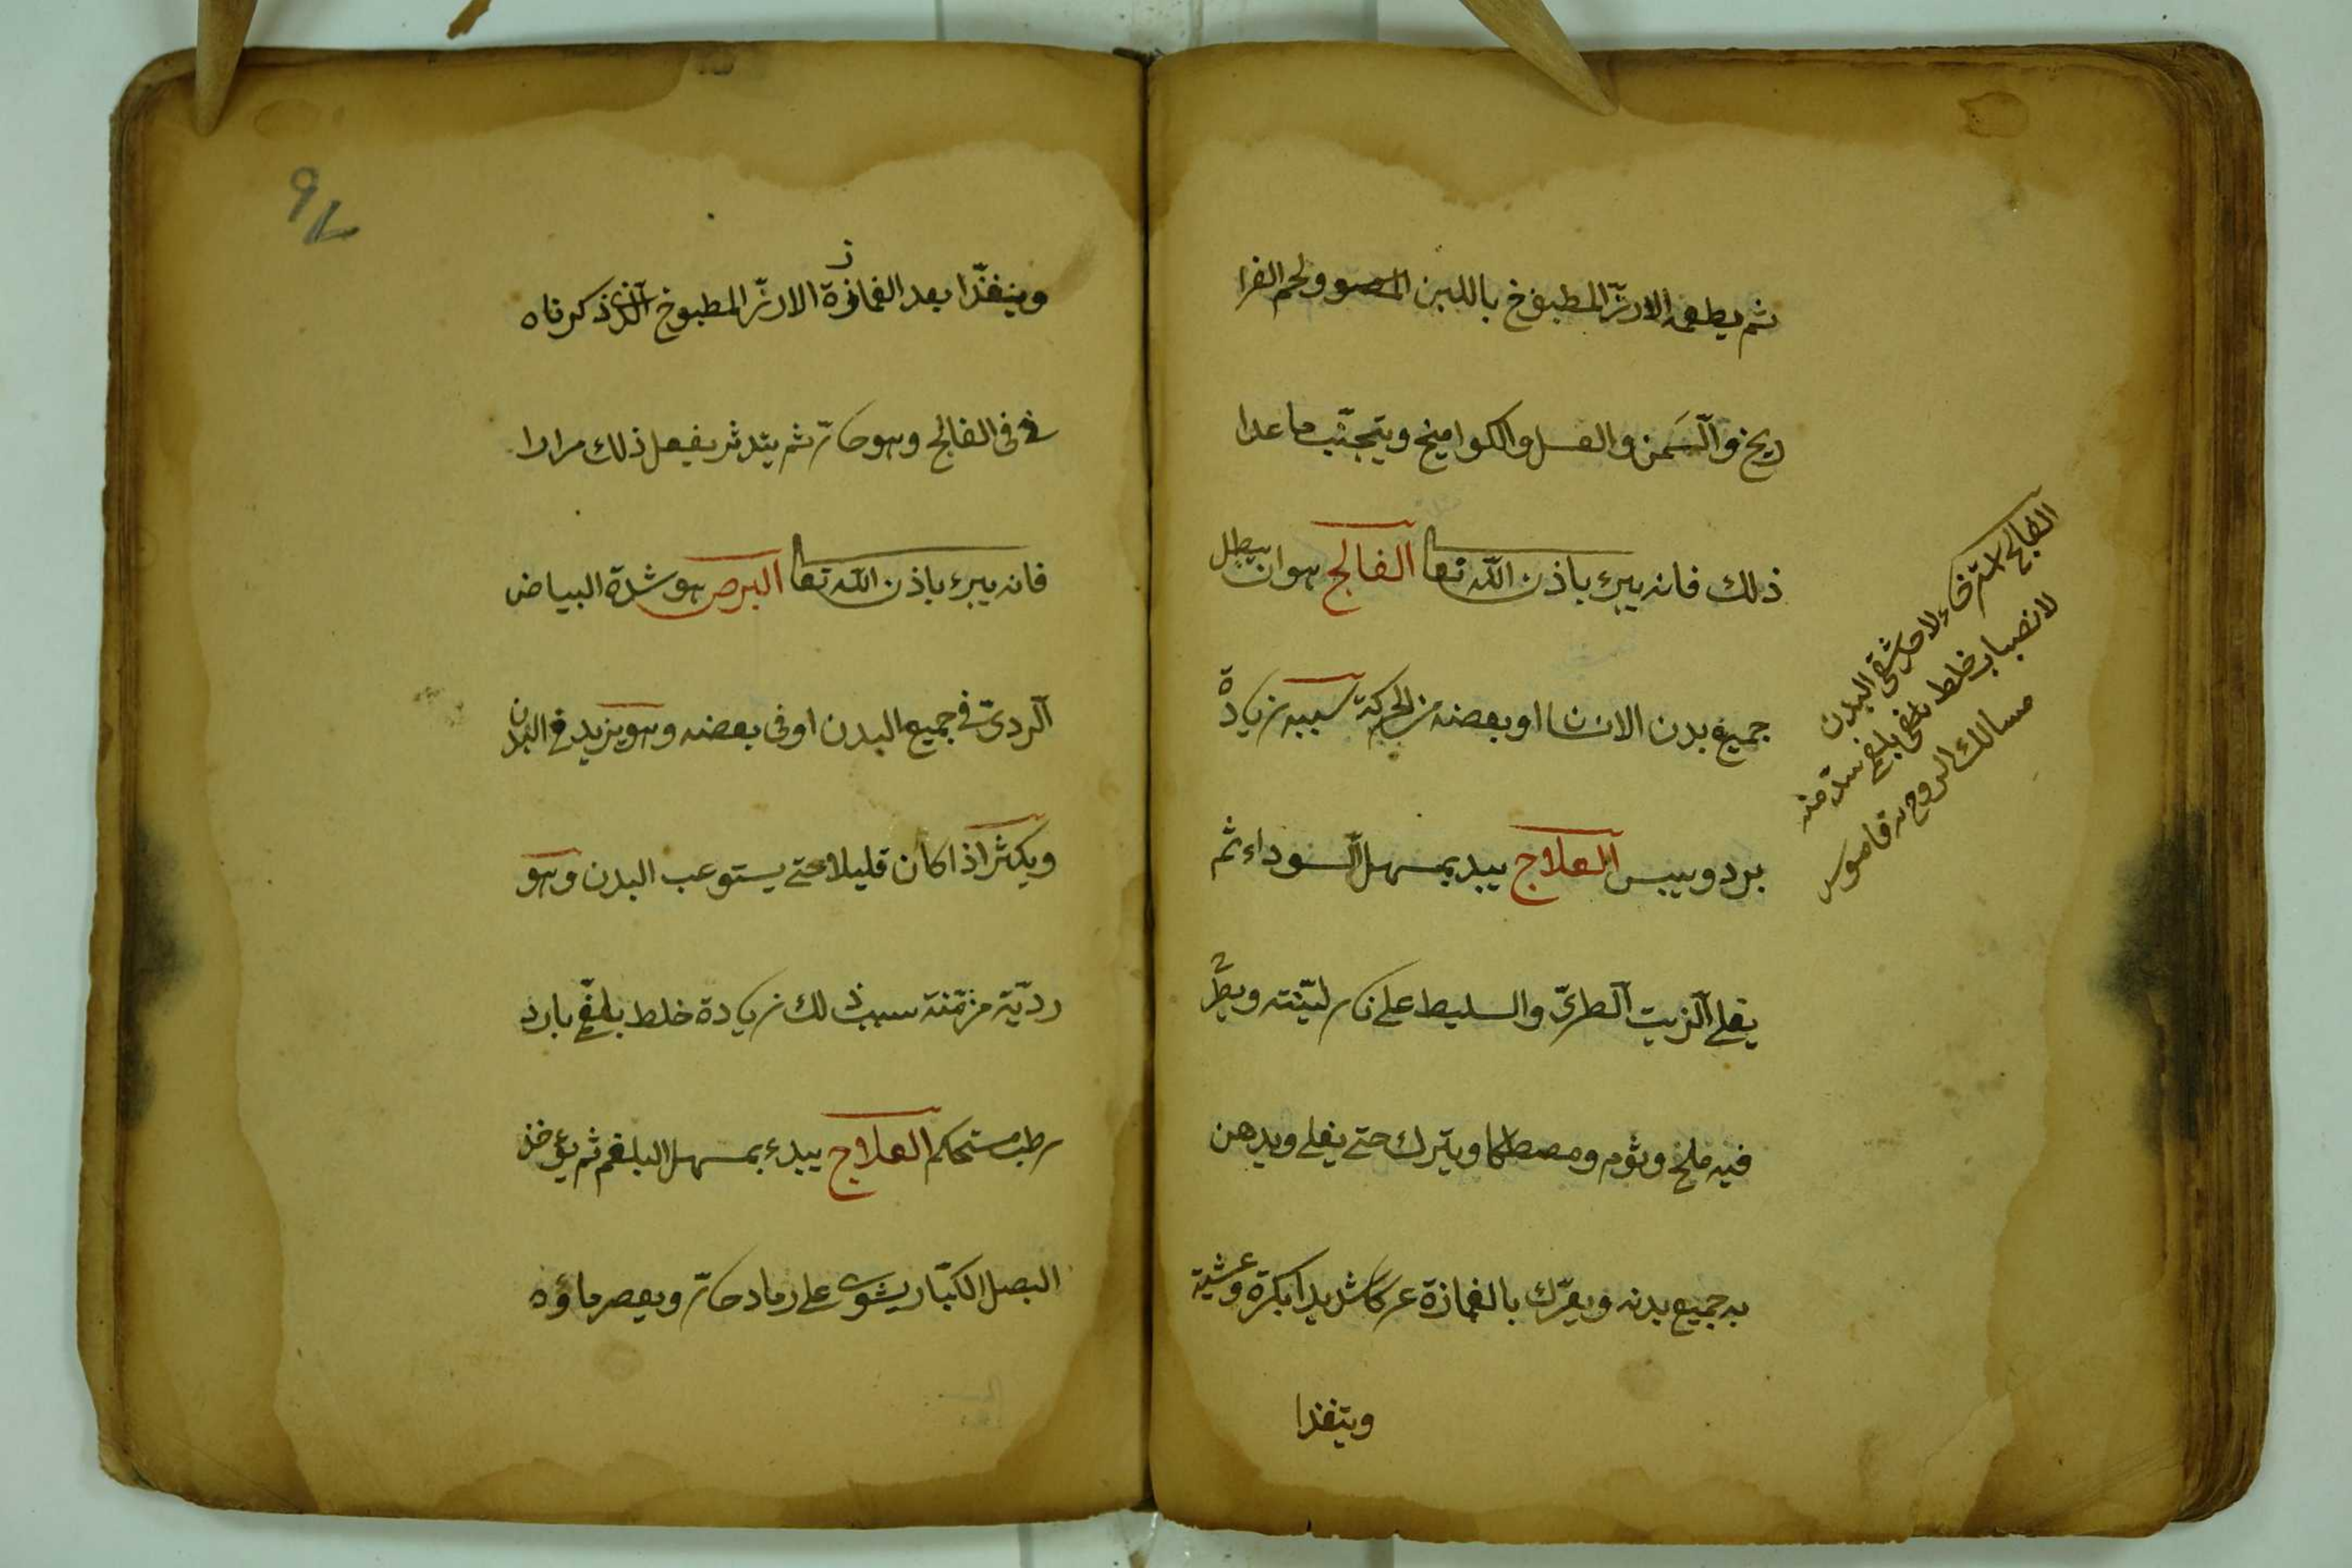 ثم يطعم الارزّ المطبوخ باللبن ولحم الفرا
ريخ والسّمن والعسل والكواميخ ويتجنّب ما عدا
ذلك فانه يبرء باذن اللّه تعا الفالج هو ان يبطل
جميع بدن الانسان او بعضه من الحركة سببه زيادة
برد ويبس العلاج يبد بمسهل السّوداء ثم
يغلى الزّيت الطّرىّ والسليط على نار ليّنته ويطرّح
فيه ملح وثوم ومصطكا ويترك حتى يغلى ويدهن
به جميع بدنه ويعرّك بالغمازة عركا شديدا بكرة وعشية
ويتغذا
الفالج استرخاء لاحد شقى البدن
لانصباب خلط بلغمى بلغم سدّ منه
مسالك الروح به قاموس
9
ويتغذّا بعد الغمازة الارزّ المطبوخ الّذى ذكرناه
فى الفالج وهو حارّ ثم يتدثر يفعل ذلك مرارا
فانه يبرء باذن اللّه تعا البرص هو شدة البياض
الردىّ فى جميع البدن او فى بعضه وهو يزيد فى البدن
ويكثر اذا كان قليلا حتى يستوعب البدن وهو
رديّة مزمّنة سبب ذلك زيادة خلط بلغمّى بارد
رطب مستحكم العلاج يبدء بمسهل البلغم ثم يؤخذ
البصل الكبّار يشوى على رماد حارّ ويعصر ماؤه